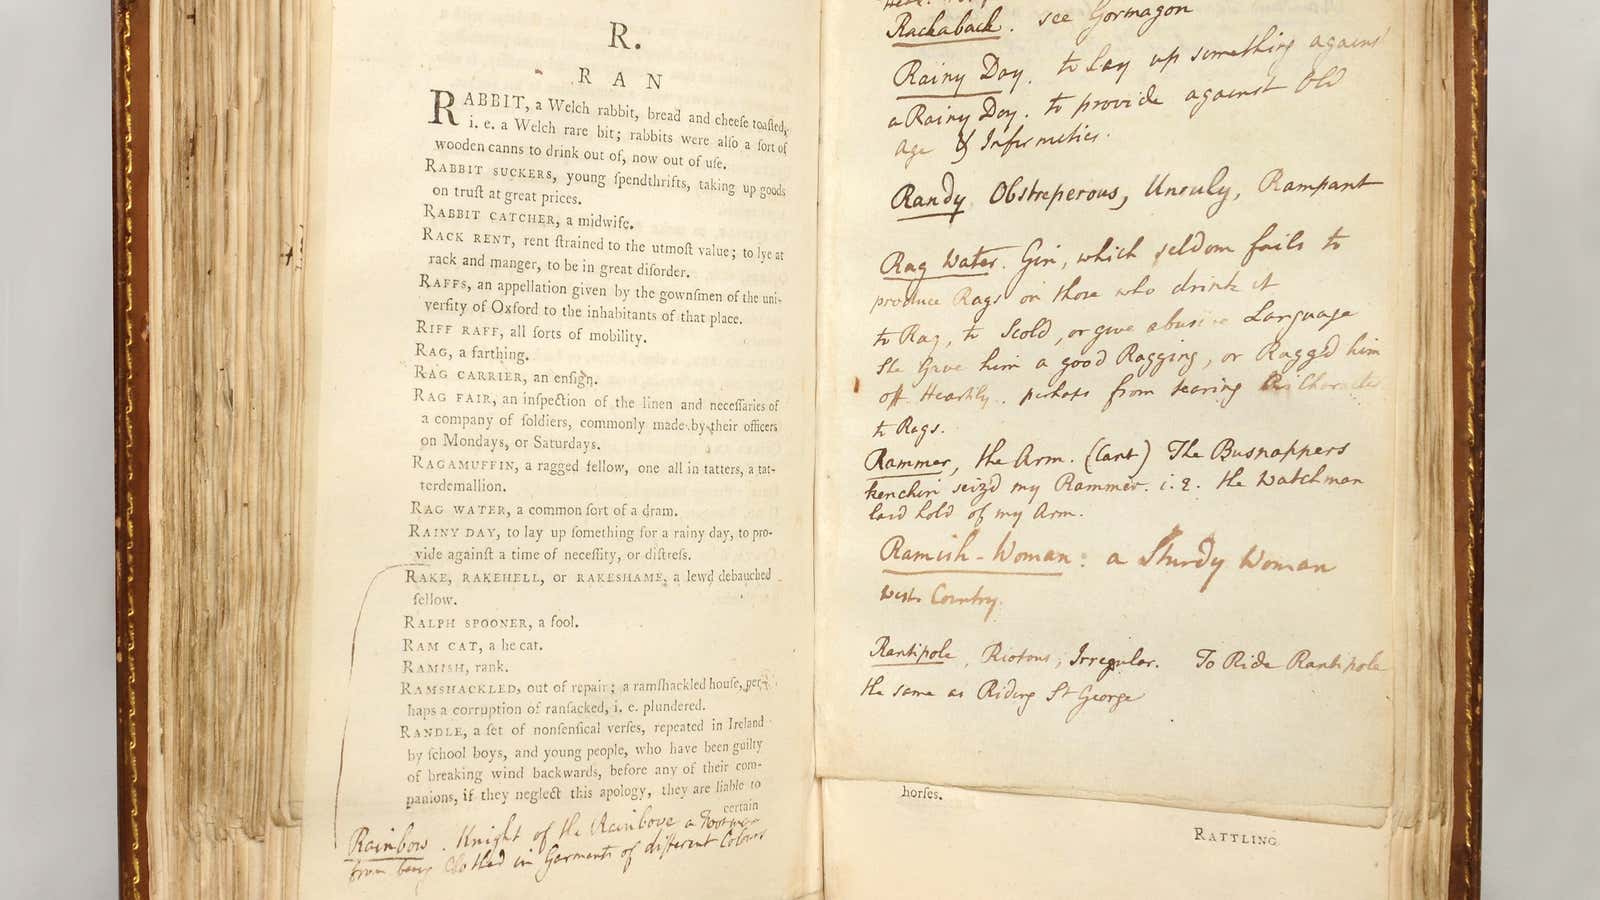 R.
RAN
RABBIT, a Welch rabbit, bread and cheeſe toaſted,
i. e. a Welch rare bit; rabbits were alſo a ſort of
wooden canns to drink out of, now out of uſe.
RABBIT SUCKERS, young ſpendthrifts, taking up goods
on truſt at great prices.
RABBIT CATCHER, a midwife.
RACK RENT, rent ſtrained to the utmoſt value; to lye at
rack and manger, to be in great diſorder.
RAFFS, an appellation given by the gownſmen of the uni-
verſity of Oxford to the inhabitants of that place.
RIFF RAFF, all ſorts of mobility.
RAG, a farthing.
RAG CARRIER, an enſign.
RAG FAIR, an inſpection of the linen and neceſſaries of
a company of ſoldiers, commonly made by their officers
on Mondays, or Saturdays.
RAGAMUFFIN, a ragged fellow, one all in tatters, a tat-
terdemallion.
RAG WATER, a common ſort of a dram.
RAINY DAY, to lay up ſomething for a rainy day, to pro-
vide againſt a time of neceſſity, or diſtreſs.
RAKE, RAKEHELL, or RAKESHAME, a lewd debauched
fellow.
RALPH SPOONER, a fool.
RAM CAT, a he cat.
RAMISH, rank.
RAMSHACKLED, out of repair; a ramſhackled houſe, per-
haps a corruption of ranſacked, i. e. plundered.
RANDLE, a ſet of nonſenſical verſes, repeated in Ireland
by ſchool boys, and young people, who have been guilty
of breaking wind backwards, before any of their com-
panions, if they neglect this apology, they are liable to
certain
Rainbow. Knight of the Rainbove a Footman
from being Clothed in Garments of different Colours
Rackaback. see Gormagon
Rainy Day. to lay up something against
a Rainy Day. to provide against Old
age & Infirmities.
Randy Obstreperous, Unruly, Rampant
Rag Water. Gin, which seldom fails to
produce Rags on those who drink it
to Rag, to Scold, or give abusive Language
She Gave him a good Ragging, or Ragged him
off Heartily. perhaps from tearing his Character
to Rags.
Rammer, the Arm. (Cant) The Busnappers
kenchin seizd my Rammer. i.e. the Watchman
laid hold of my Arm.
Ramish-Woman: a Sturdy Woman
West Country.
Rantipole, Riotous, Irregular. To Ride Rantipole
the same as Riding St George
horſes.
RATTLING